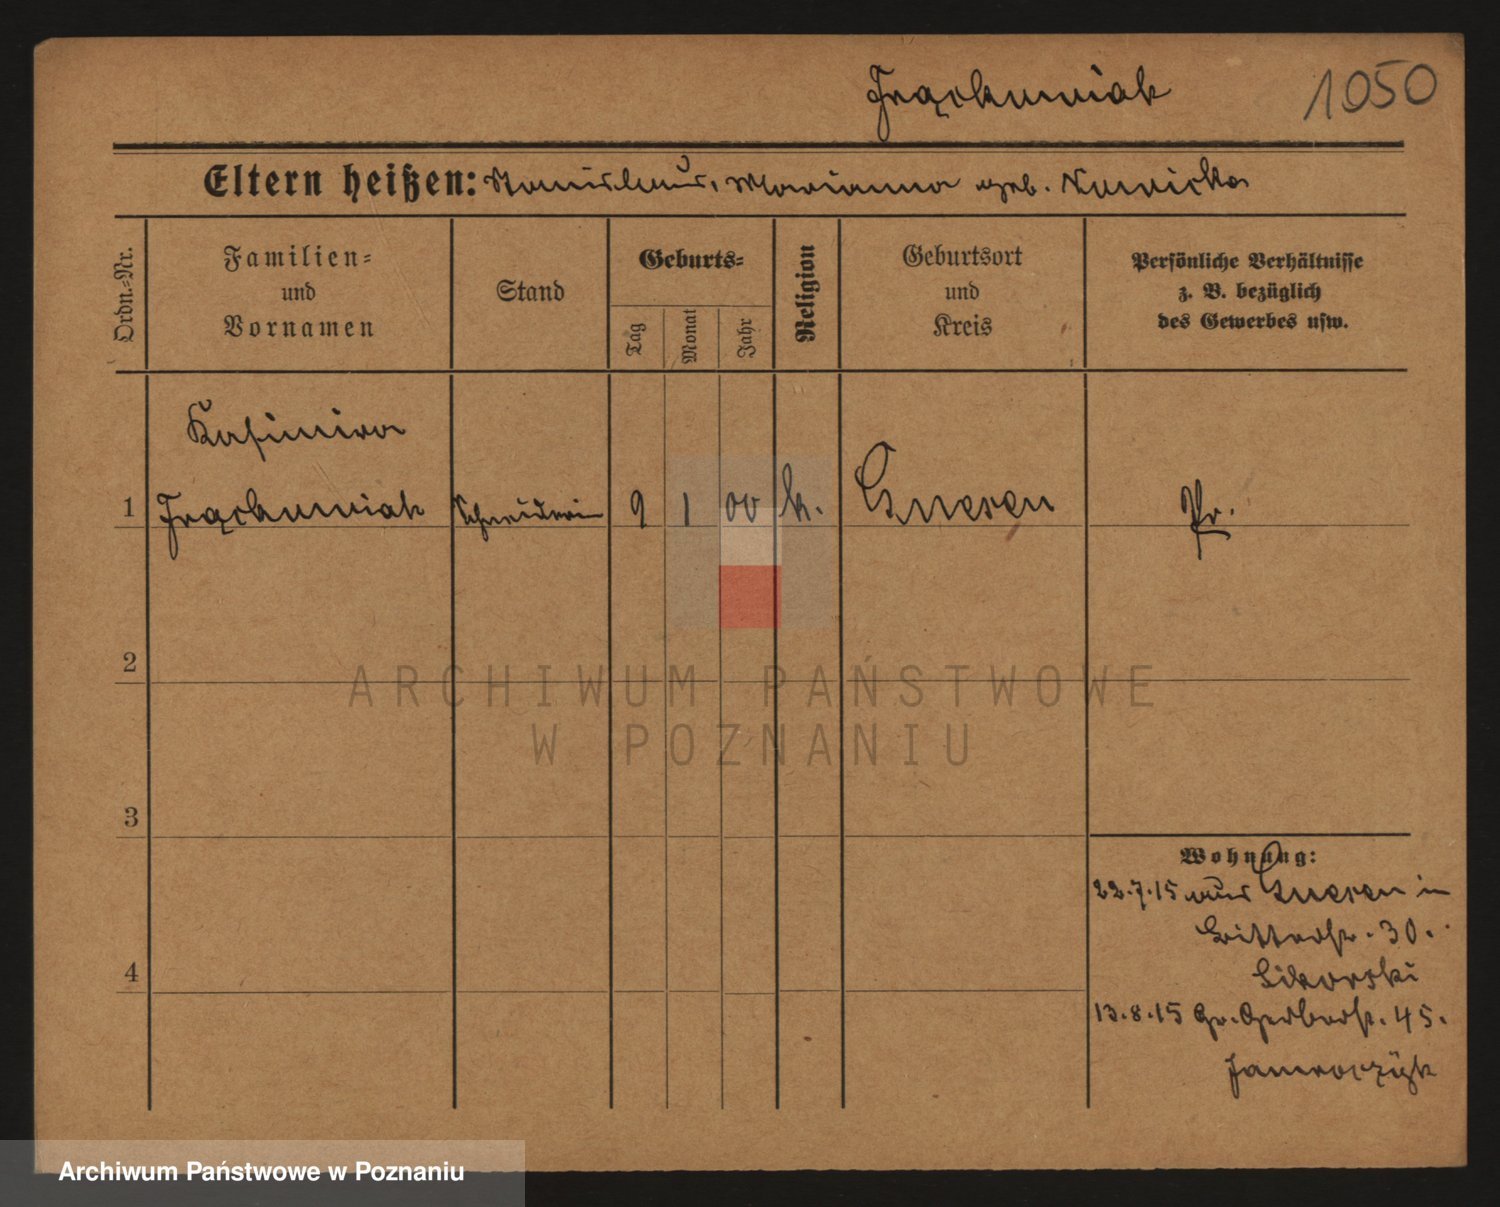 Frąckowiak 1050
Eltern heißen: Stanislaus, Marianna geb. Nowicka
Ordn.=Nr.
Familien=
und
Vornamen
Stand
Geburts=
Tag
Monat
Jahr
Religion
Geburtsort
und
Kreis
Persönliche Verhältnisse
z. B. bezüglich
des Gewerbes usw.
Kasimira
1 Frąckowiak Schneiderin 9 1 00 k. Gnesen Pr.
2
3
4
Wohnung:
22.7.15 aus Gnesen in
Ritterstr. 30.
Sikorski
13.8.15 Gr. Gerberstr. 45.
Jamroczyk
ARCHIWUM PAŃSTWOWE
W POZNANIU
Archiwum Państwowe w Poznaniu